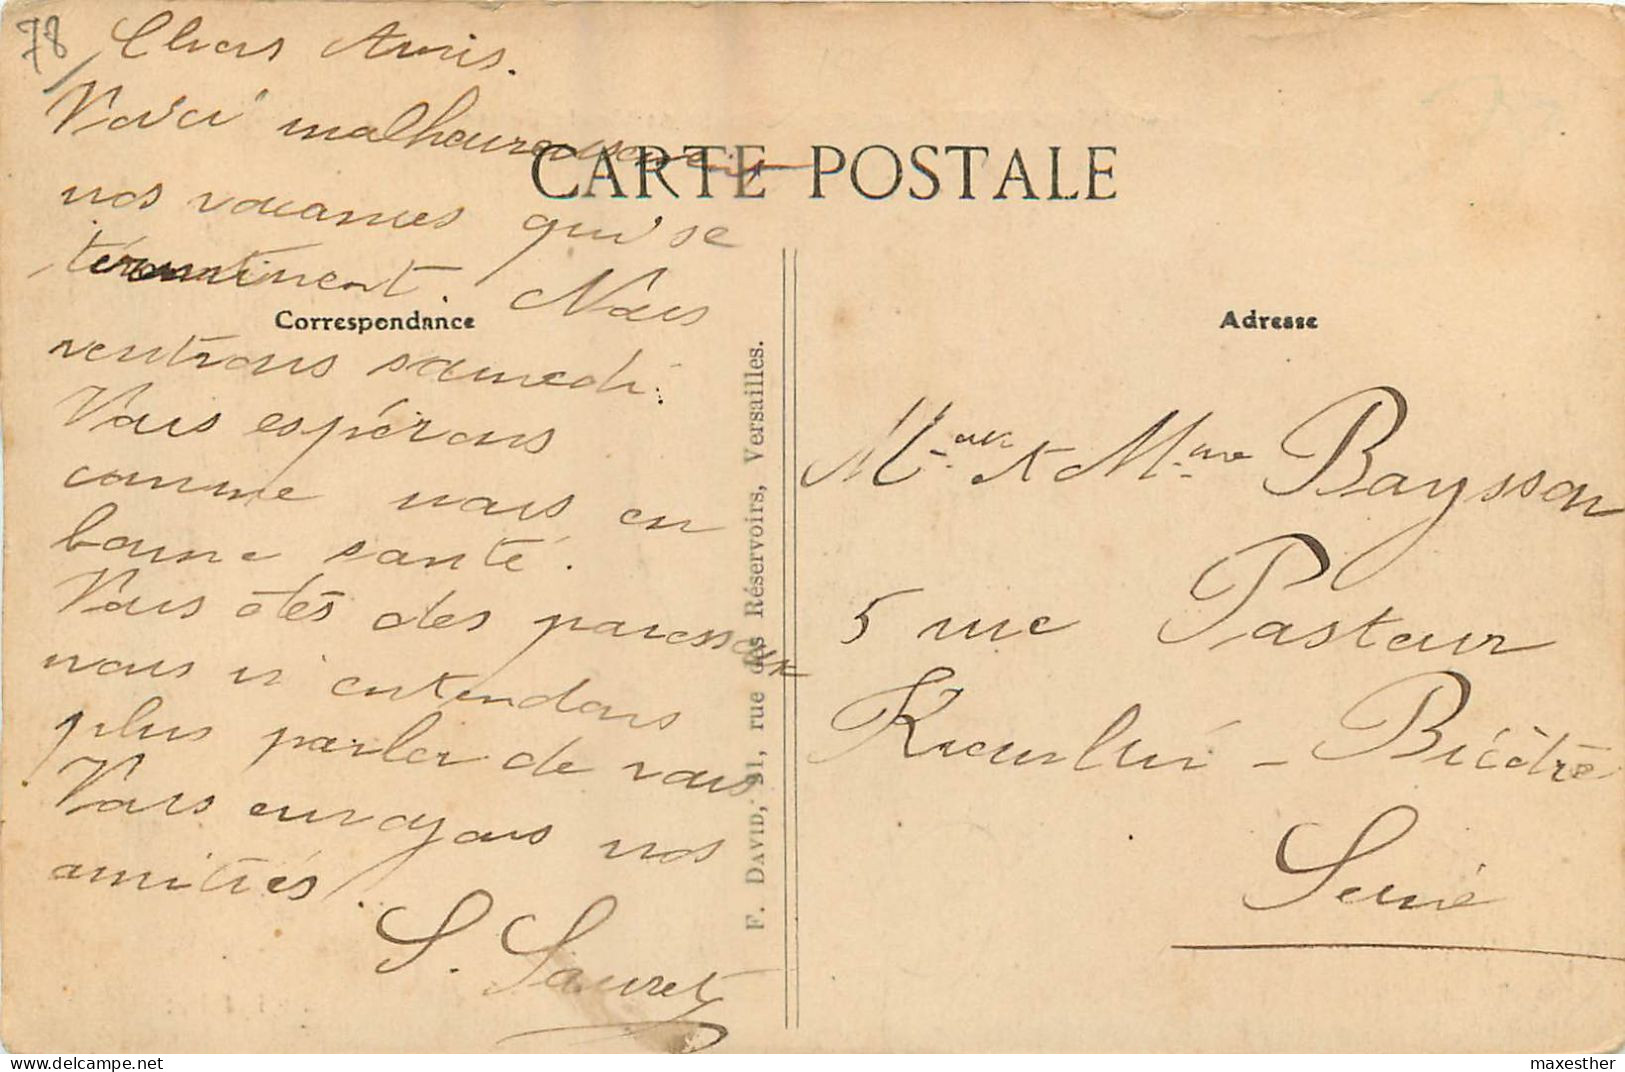 78
Chers Amis.
Voici malheureusement
CARTE POSTALE
nos vacances qui se
terminent. Nous
Correspondance
rentrons samedi.
Vous espérons
comme nous en
bonne santé.
Vous êtes des paresseux
nous n'entendons
plus parler de vous
Vous envoyons nos
amitiés.
S. Sauret
F. DAVID, 91, rue des Réservoirs, Versailles.
Adresse
et Mme Baysson
5 rue Pasteur
Kremlin - Bicêtre
Seine
delcampe.net
maxesther